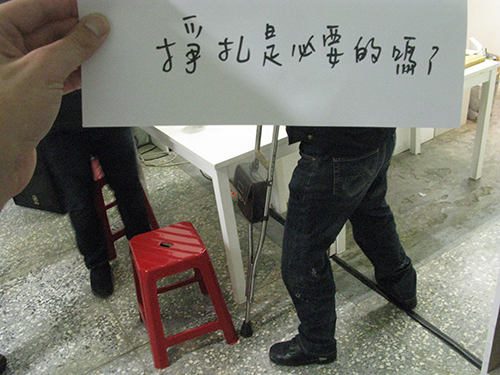 掙扎是必要的嗎?